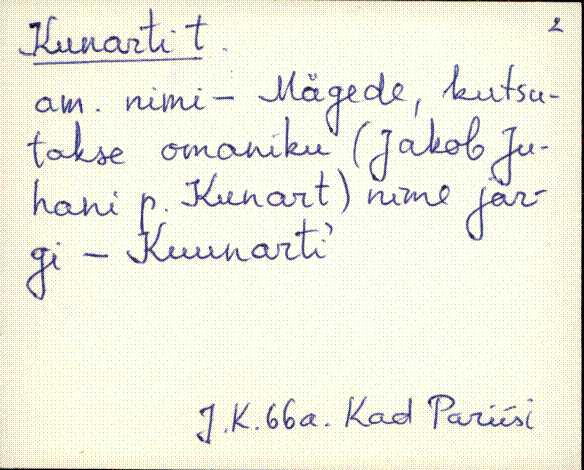 2
Kunarti t.
am. nimi - Mägede, kutsu-
takse omaniku (Jakob Ju-
hani p. Kunart) nime jär-
gi - Kuunarti`
J.K. 66a. Kad Pariisi